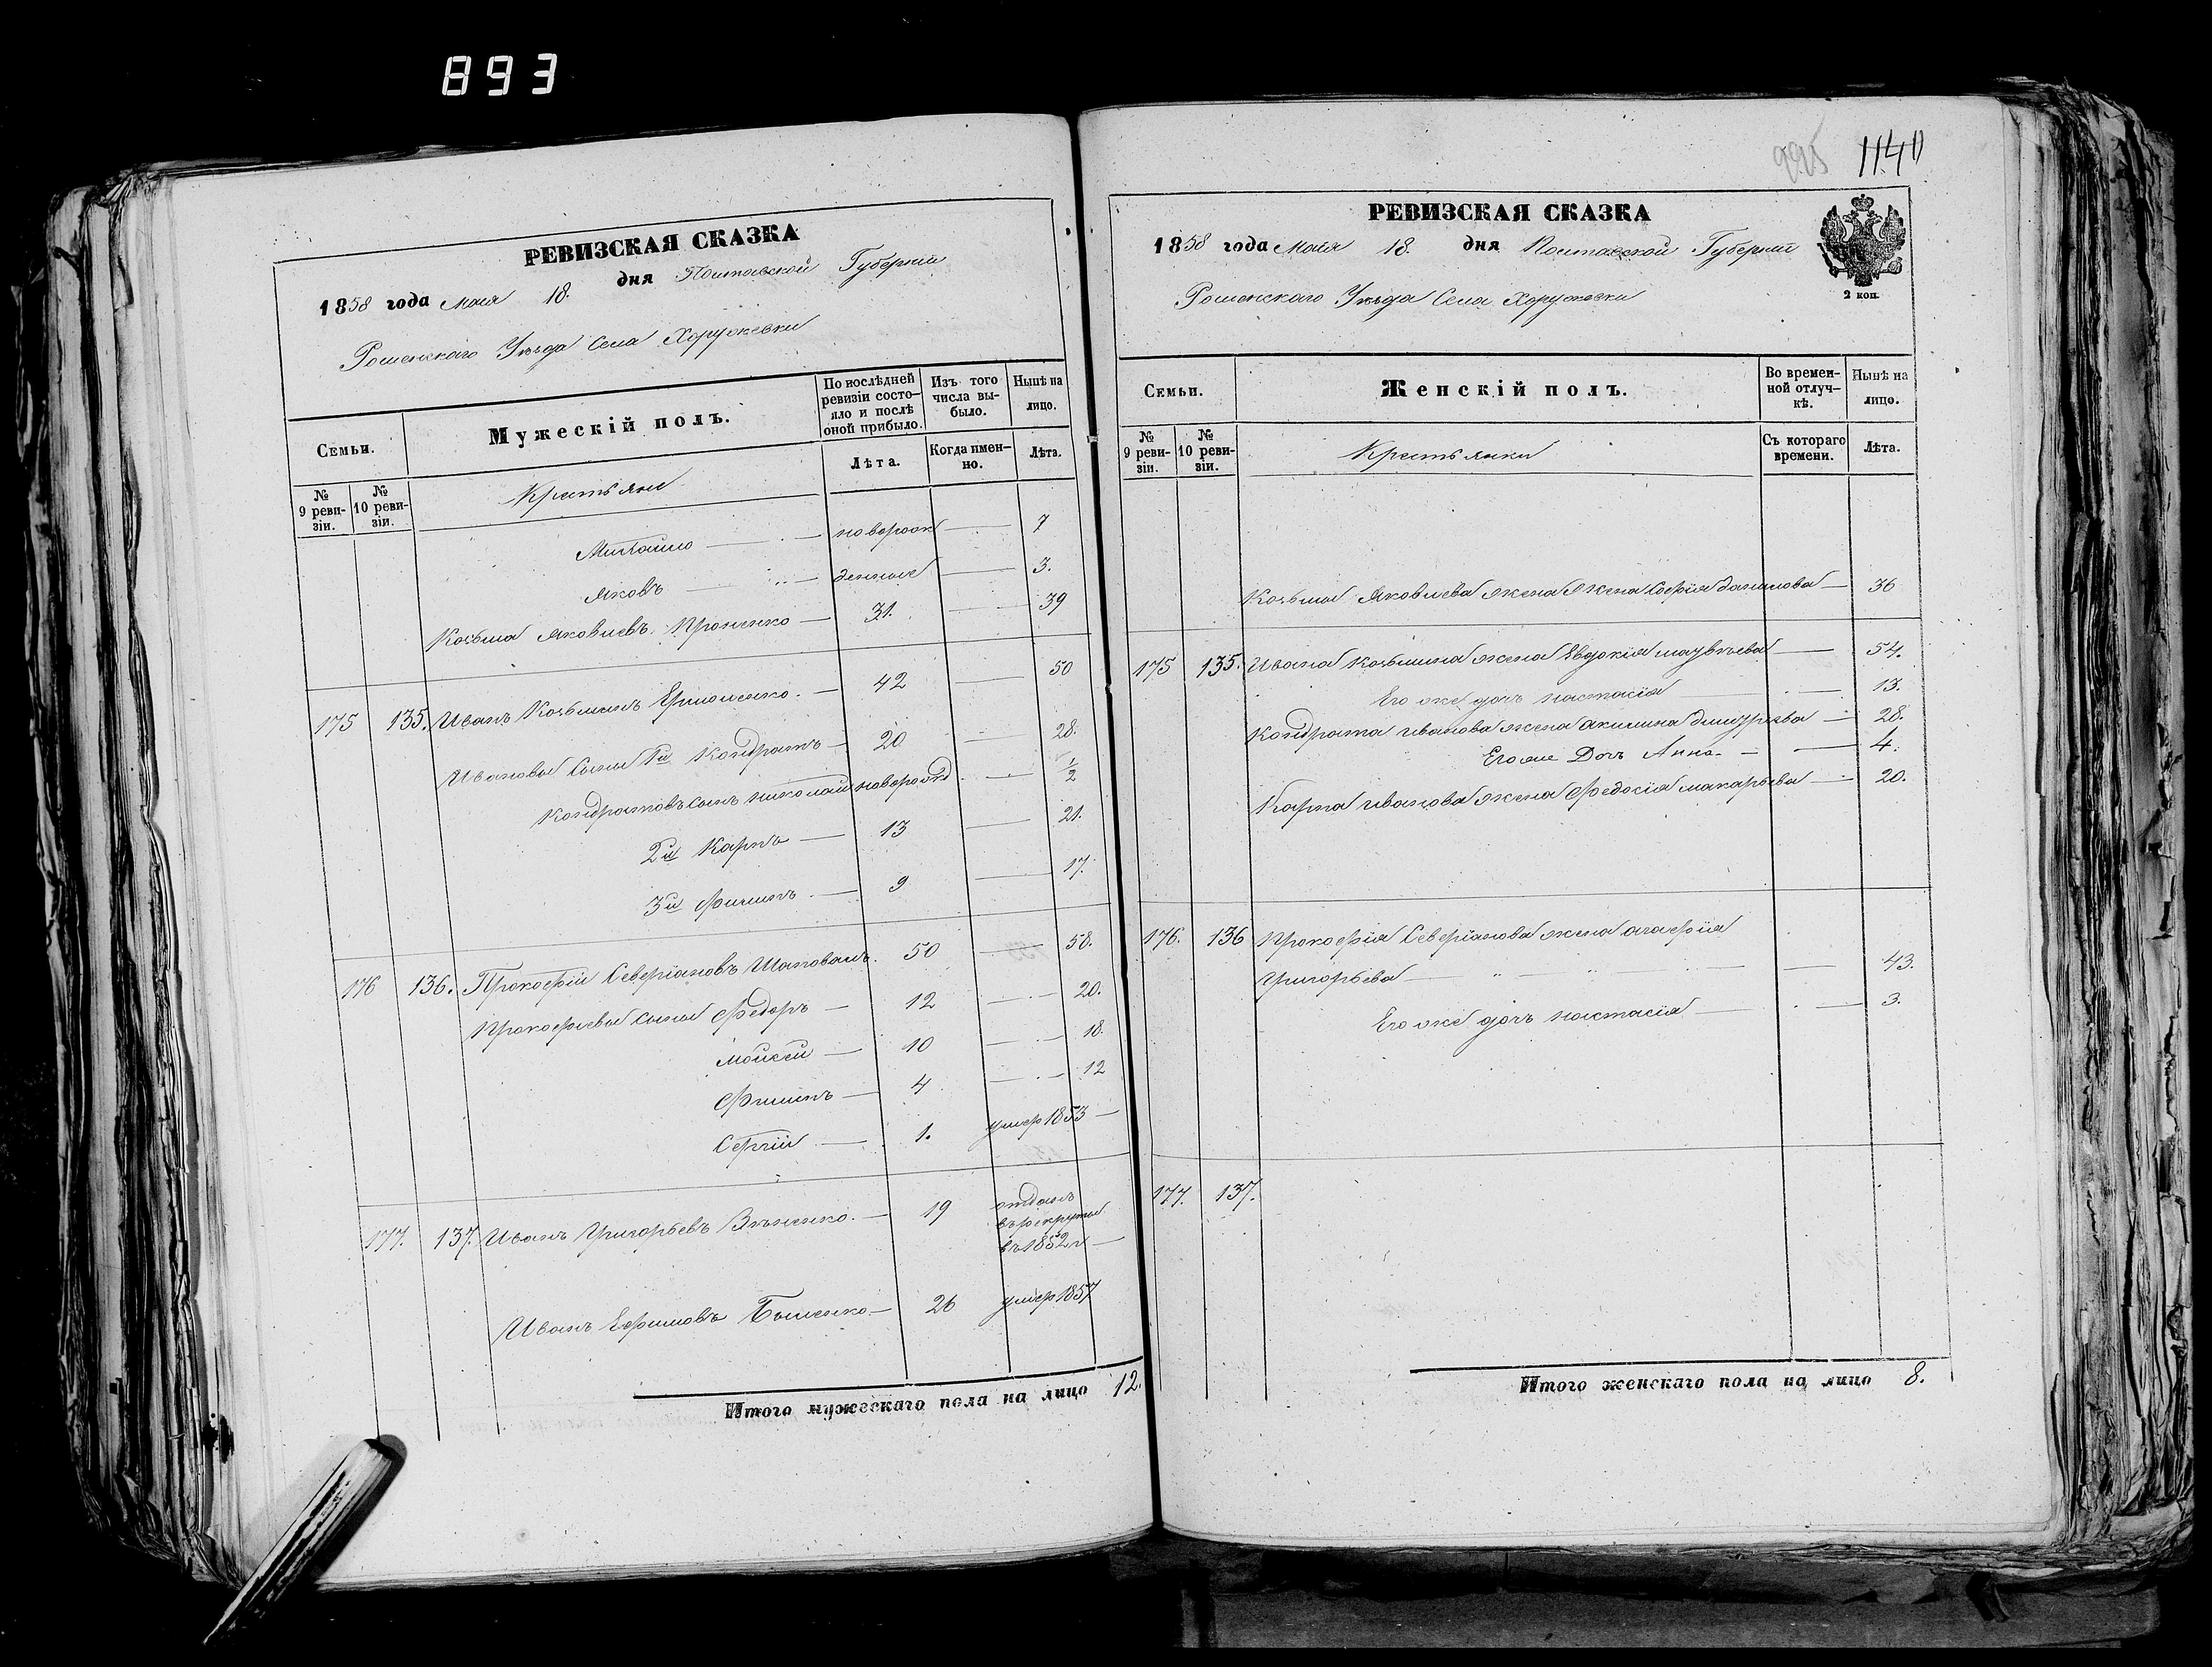 893
РЕВИЗСКАЯ СКАЗКА
1858 года Мая 18. дня Полтавской Губерніи
Роменскаго Уѣзда Села Хоружевки
Семьи.
Мужескій полъ.
По послѣдней ревизіи состояло и послѣ оной прибыло.
Изъ того числа выбыло.
Нынѣ на лицо.
№ 9 ревизіи.
№ 10 ревизіи.
Крестьяне
Лѣта.
Когда именно.
Лѣта.
Михайло — новорож — 7
Яковъ — денные — 3.
Козьма Яковлевъ Проненко — 31. — 39
175 135. Иванъ Козьминъ Ермоленко. — 42 — 50
Ивановы сыны 1й Кондратъ — 20 — 28.
Кондратовъ сынъ Николай новорожд. — 1/2
2й Карпъ — 13 — 21.
3й Филипъ — 9 — 17.
176 136. Прокофій Северіановъ Шаповалъ. 50 — 58.
Прокофіевы сыны Федоръ — 12 — 20.
Мойсей — 10 — 18.
Филипъ — 4 — 12
Сергій — 1. умер 1853 —
177. 137. Иванъ Григорьевъ — 19 отданъ
в рекруты
въ 1852 г —
Иванъ Ефимовъ — 26 умер 1857
Итого мужескаго пола на лицо 12.
995 1140
РЕВИЗСКАЯ СКАЗКА
1858 года Мая 18. дня Полтавской Губерніи
2 коп.
Роменскаго Уѣзда Села Хоружевки
Семьи.
Женскій полъ.
Во временной отлучкѣ.
Нынѣ на лицо.
№ 9 ревизіи.
№ 10 ревизіи.
Крестьянки
Съ котораго времени.
Лѣта.
Козьмы Яковлева жена жена Софія Данилова — 36
175 135. Ивана Козьмина жена Евдокія — 54.
Его же дочь Настасія — 13.
Кондрата Иванова жена Акилина — 28.
Его же Дочь Анна — 4.
Карпа Иванова жена Федосія Макарьева — 20.
176. 136 Прокофія Северіанова жена Агафія
Григорьева — 43.
Его же дочь Настасія — 3.
177. 137.
Итого женскаго пола на лицо 8.